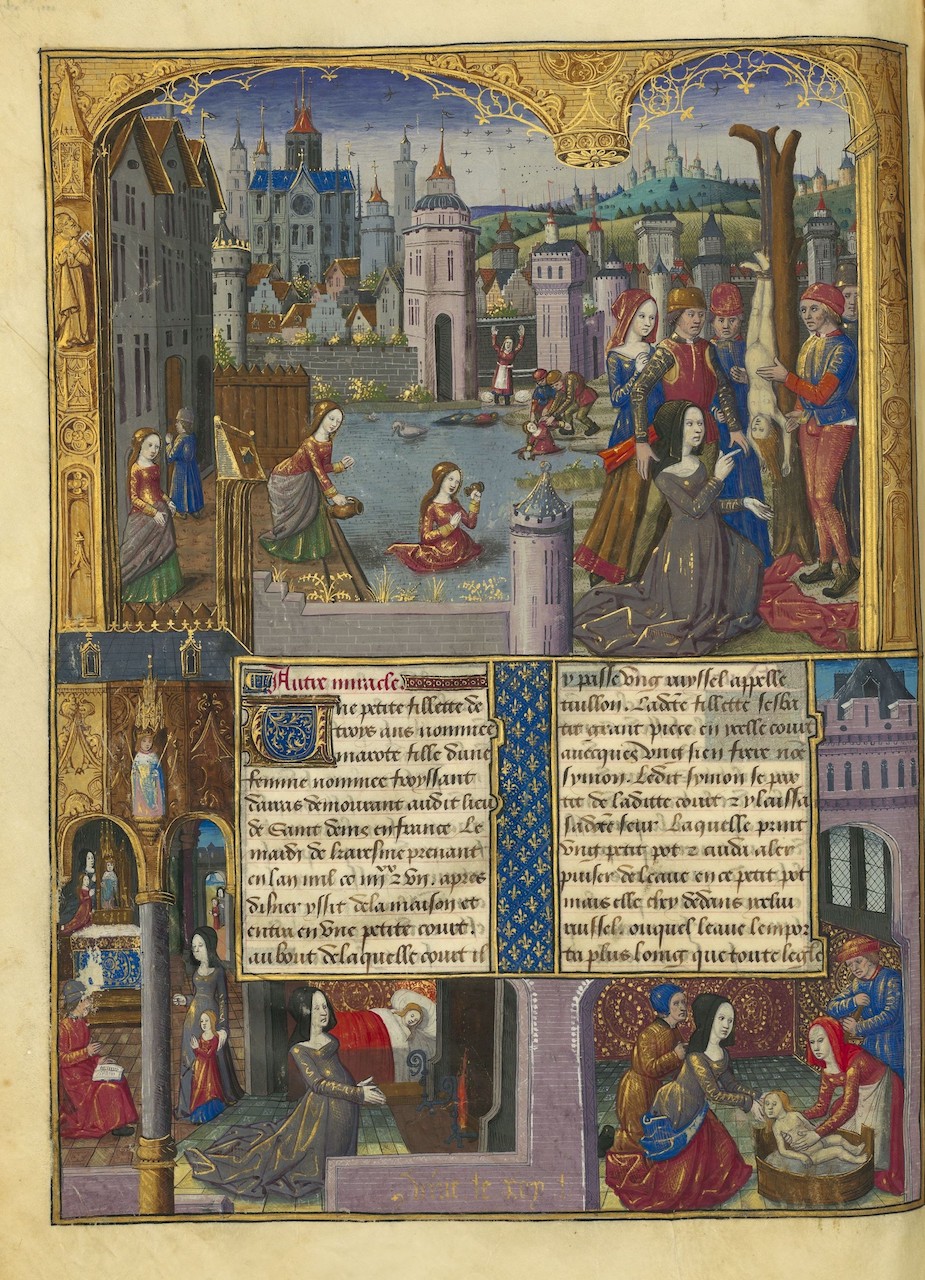 Autre miracle.
Une petite fillette de
troys ans nommee
marote fille dune
femme nommee froyssant
daras demourant audit lieu
de Saint denis en france. Le
mardi de karesme prenant
en lan mil cc iiiixx & un. apres
disner yssit de la maison et
entra en une petite court.
au bout de laquelle court il
y passe ung ruyssel appelle
Ladite fillette sesba
tit grant piece en ycelle court
avecques ung sien frere nōe
symon. Ledit symon se par
tit de laditte court & y laissa
sadite seur. Laquelle print
ung petit pot & cuida aler
puiser de leaue en ce petit pot
mais elle chey dedans ycelui
ruissel. ouquel leaue lempor
ta plus loing que toute